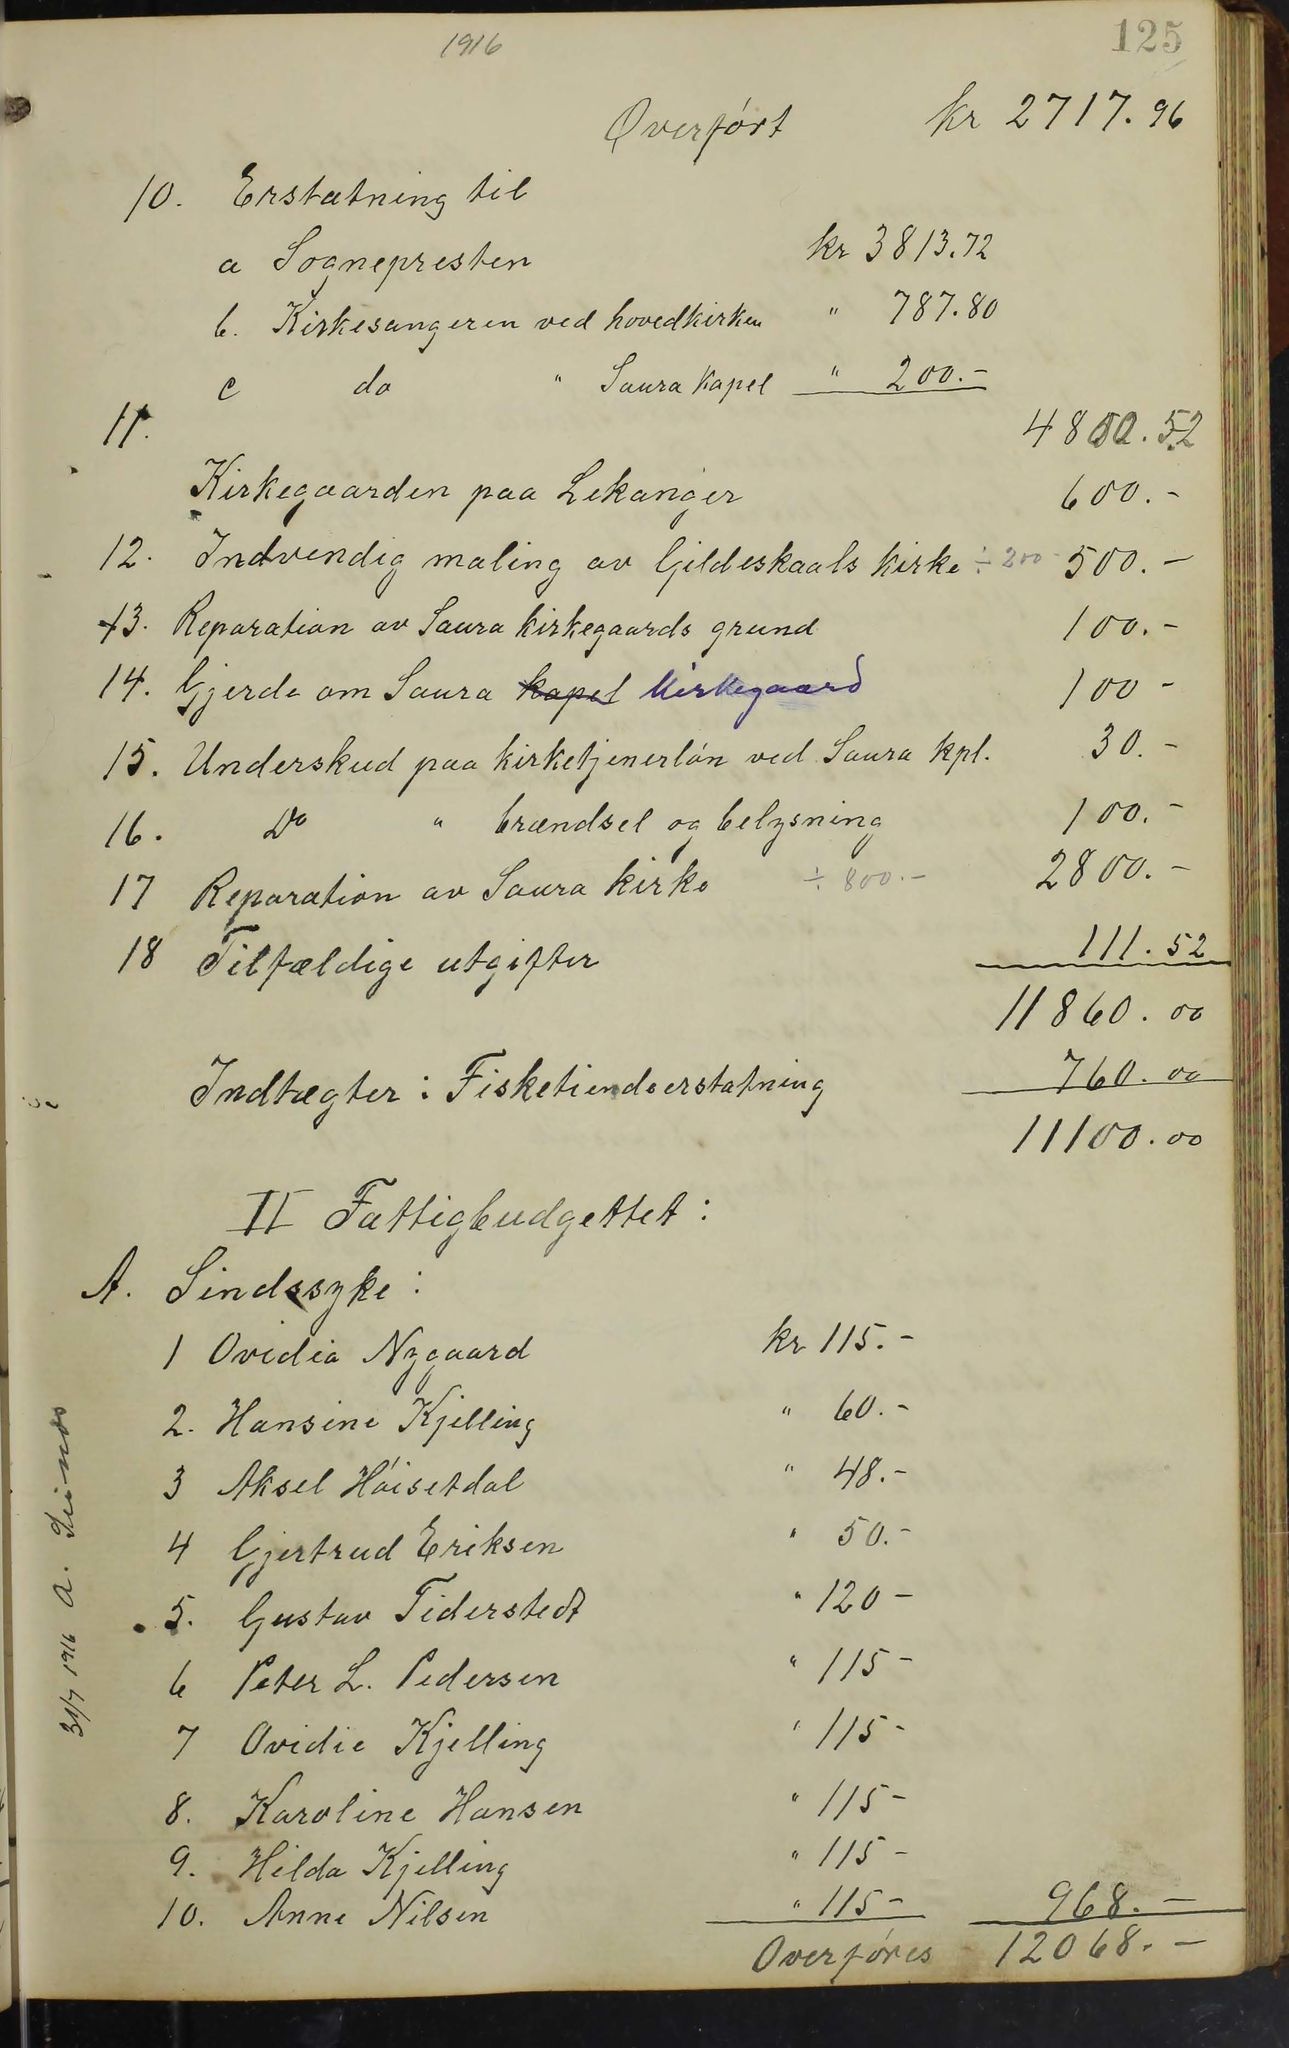 1916
125
Overført kr 2717.96
10. Erstatning til
a Sognepresten kr 3813.72
b. Kirkesangeren ved hovedkirken " 787.80
c do " Saura kapel " 200.-
11. 4800.52
Kirkegaarden paa Lekanger 600.-
12. Indvendig maling av Gildeskaals kirke ÷ 200- 500.-
13. Reparation av Saura kirkegaards grund 100.-
14. Gjerde om Saura kapel kirkegaard 100-
15. Underskud paa kirketjenerløn ved Saura kpl. 30.-
16. Do " brændsel og belysning 100.-
17 Reparation av Saura kirke ÷ 800.- 2800.-
18 Tilfældige utgifter 111.52
11860.00
Indtægter: Fisketiendeerstatning 760.00
11100.00
II Fattigbudgettet:
A. Sindssyke:
1 Ovidia Nygaard kr 115.-
2. Hansine Kjelling " 60.-
3 Aksel Høisetdal " 48.-
4 Gjertrud Eriksen " 50.-
5. Gustav Tiderstedt " 120-
6 Peter L. Pedersen " 115-
7 Ovidie Kjelling " 115-
8. Karoline Hansen " 115-
9. Hilda Kjelling " 115-
10. Anne Nilsen " 115- 968.-
Overføres 12068.-
31/7 1916 A.